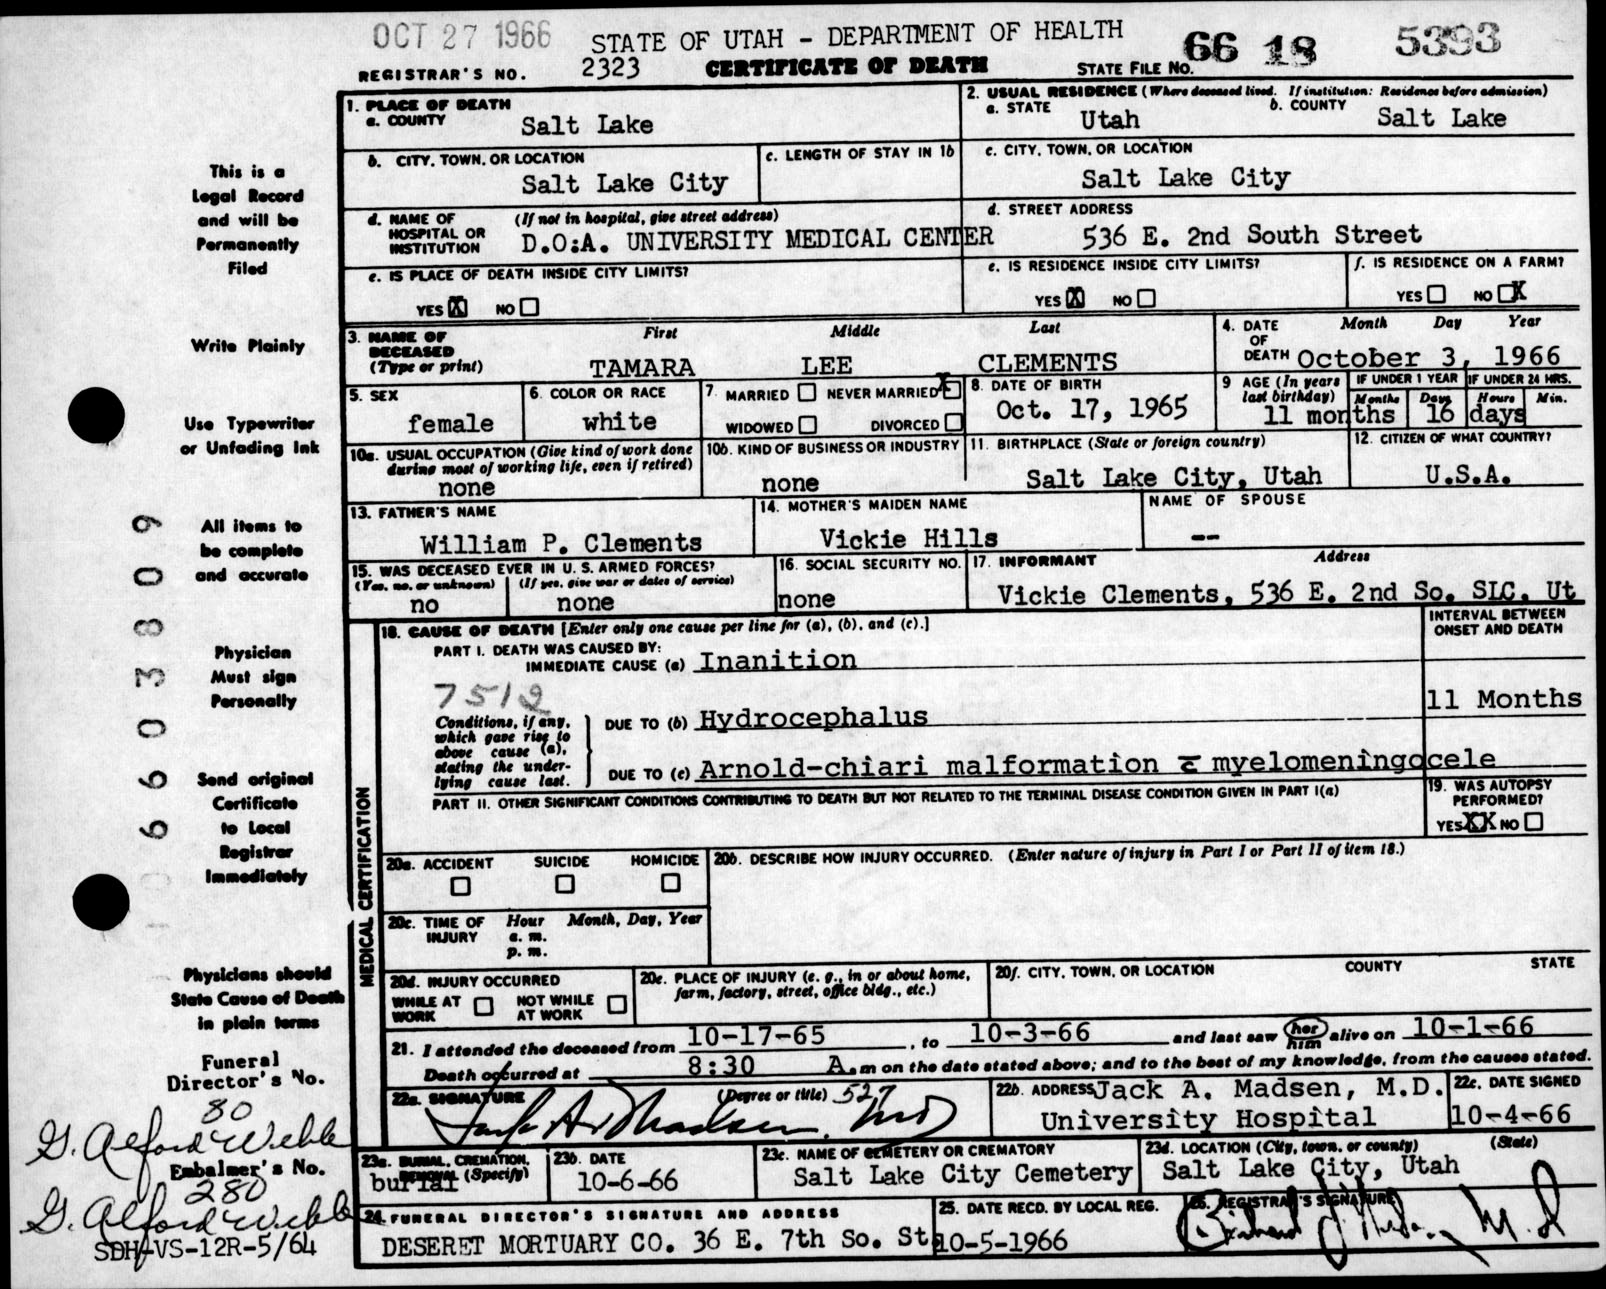 OCT 27 1966
STATE OF UTAH - DEPARTMENT OF HEALTH
66 18 5393
REGISTRAR'S NO. 2323 CERTIFICATE OF DEATH STATE FILE NO.
This is a
Legal Record
and will be
Permanently
Filed
Write Plainly
Use Typewriter
or Unfading Ink
All items to
be complete
and accurate
Physician
Must sign
Personally
Send original
Certificate
to Local
Registrar
Immediately
Physicians should
State Cause of Death
in plain terms
Funeral
Director's No.
80
G. Alford Webb
Embalmer's No.
280
G. Alford Webb
SDH-VS-12R-5/64
6603809
1. PLACE OF DEATH
a. COUNTY Salt Lake
2. USUAL RESIDENCE (Where deceased lived. If institution: Residence before admission)
a. STATE Utah b. COUNTY Salt Lake
b. CITY, TOWN, OR LOCATION Salt Lake City
c. LENGTH OF STAY IN 1b
c. CITY, TOWN, OR LOCATION Salt Lake City
d. NAME OF HOSPITAL OR INSTITUTION (If not in hospital, give street address)
D.O:A. UNIVERSITY MEDICAL CENTER
d. STREET ADDRESS
536 E. 2nd South Street
e. IS PLACE OF DEATH INSIDE CITY LIMITS?
YES X NO
e. IS RESIDENCE INSIDE CITY LIMITS?
YES X NO
f. IS RESIDENCE ON A FARM?
YES NO X
3. NAME OF DECEASED (Type or print)
First Middle Last
TAMARA LEE CLEMENTS
4. DATE OF DEATH Month Day Year
October 3, 1966
5. SEX
female
6. COLOR OR RACE
white
7. MARRIED NEVER MARRIED X
WIDOWED DIVORCED
8. DATE OF BIRTH
Oct. 17, 1965
9 AGE (In years last birthday) IF UNDER 1 YEAR Months Days IF UNDER 24 HRS. Hours Min.
11 months 16 days
10a. USUAL OCCUPATION (Give kind of work done during most of working life, even if retired)
none
10b. KIND OF BUSINESS OR INDUSTRY
none
11. BIRTHPLACE (State or foreign country)
Salt Lake City, Utah
12. CITIZEN OF WHAT COUNTRY?
U.S.A.
13. FATHER'S NAME
William P. Clements
14. MOTHER'S MAIDEN NAME
Vickie Hills
NAME OF SPOUSE
--
15. WAS DECEASED EVER IN U. S. ARMED FORCES?
(Yes, no, or unknown) (If yes, give war or dates of service)
no none
16. SOCIAL SECURITY NO.
none
17. INFORMANT Address
Vickie Clements, 536 E. 2nd So. SLC, Ut
MEDICAL CERTIFICATION
18. CAUSE OF DEATH [Enter only one cause per line for (a), (b), and (c).]
INTERVAL BETWEEN ONSET AND DEATH
PART I. DEATH WAS CAUSED BY:
IMMEDIATE CAUSE (a) Inanition
7512
11 Months
Conditions, if any, which gave rise to above cause (a), stating the underlying cause last.
DUE TO (b) Hydrocephalus
DUE TO (c) Arnold-chiari malformation c̄ myelomeningocele
PART II. OTHER SIGNIFICANT CONDITIONS CONTRIBUTING TO DEATH BUT NOT RELATED TO THE TERMINAL DISEASE CONDITION GIVEN IN PART I(a)
19. WAS AUTOPSY PERFORMED?
YES XX NO
20a. ACCIDENT SUICIDE HOMICIDE
20b. DESCRIBE HOW INJURY OCCURRED. (Enter nature of injury in Part I or Part II of item 18.)
20c. TIME OF INJURY Hour Month, Day, Year
a. m.
p. m.
20d. INJURY OCCURRED
WHILE AT WORK NOT WHILE AT WORK
20e. PLACE OF INJURY (e. g., in or about home, farm, factory, street, office bldg., etc.)
20f. CITY, TOWN, OR LOCATION COUNTY STATE
21. I attended the deceased from 10-17-65, to 10-3-66 and last saw her him alive on 10-1-66
Death occurred at 8:30 A.m on the date stated above; and to the best of my knowledge, from the causes stated.
22a. SIGNATURE (Degree or title) 527
Jack A. Madsen, MD
22b. ADDRESS Jack A. Madsen, M.D.
University Hospital
22c. DATE SIGNED
10-4-66
23a. BURIAL, CREMATION, REMOVAL (Specify)
burial
23b. DATE
10-6-66
23c. NAME OF CEMETERY OR CREMATORY
Salt Lake City Cemetery
23d. LOCATION (City, town, or county) (State)
Salt Lake City, Utah
24. FUNERAL DIRECTOR'S SIGNATURE AND ADDRESS
DESERET MORTUARY CO. 36 E. 7th So. St.
25. DATE RECD. BY LOCAL REG.
10-5-1966
26. REGISTRAR'S SIGNATURE
M.D.